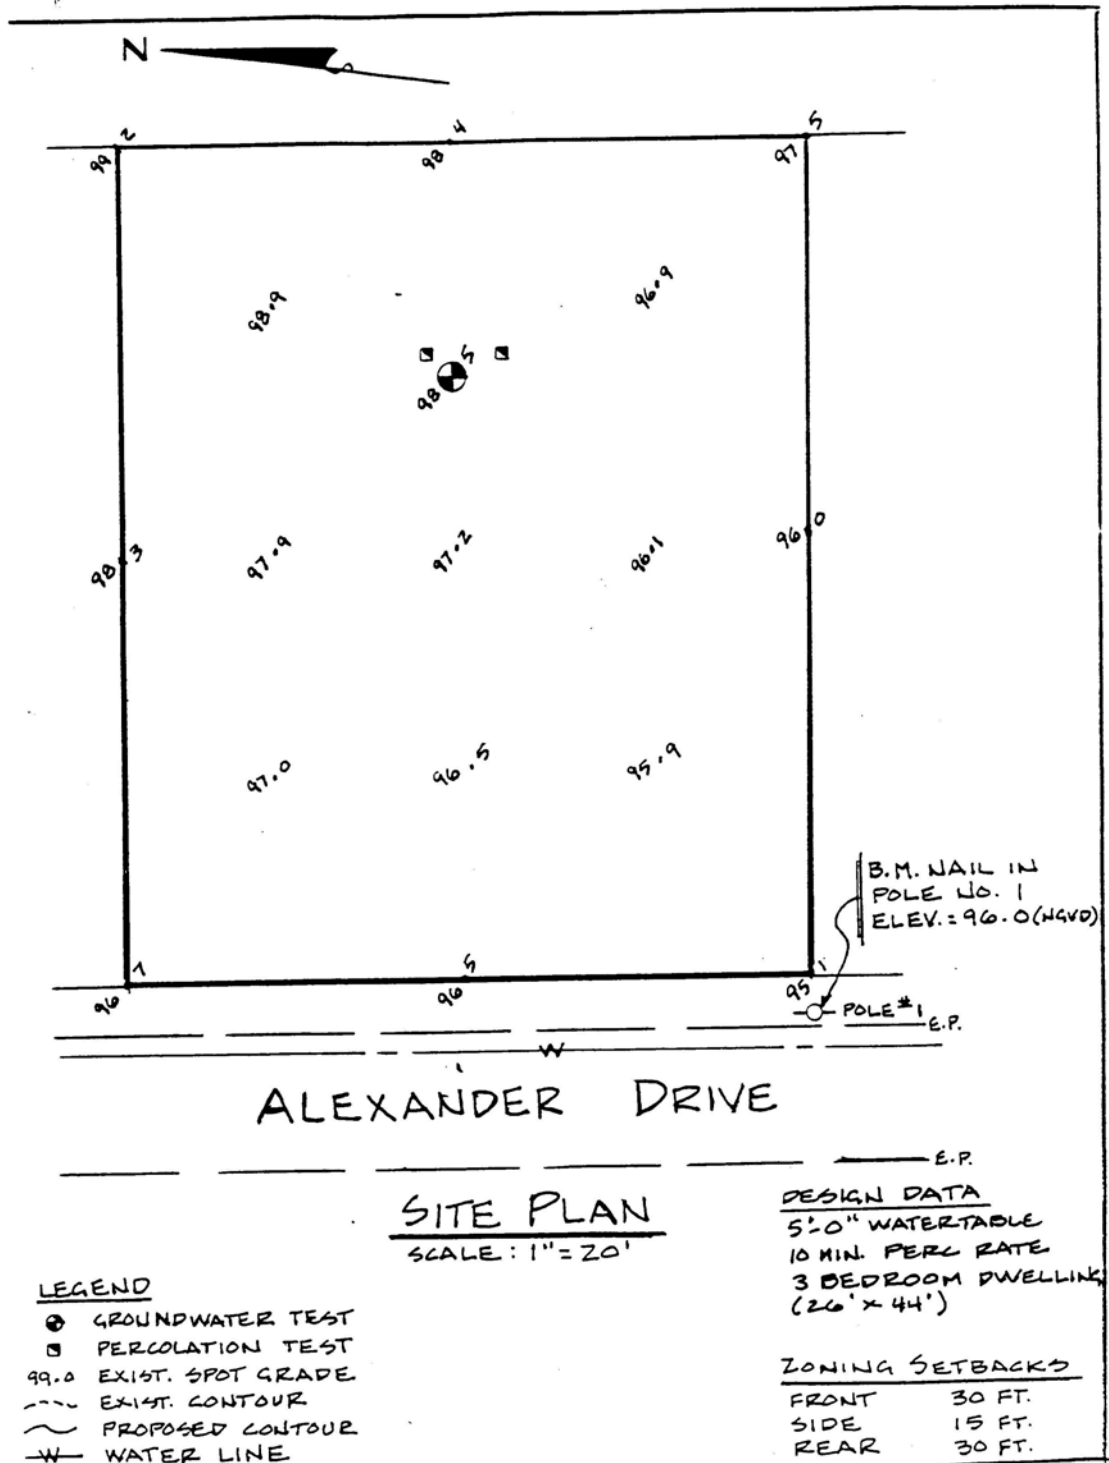 N
99.2
98.4
97.5
98.9
96.9
98.5
98.3
97.9
97.2
96.1
96.0
97.0
96.5
95.9
B.M. NAIL IN
POLE NO. 1
ELEV. = 96.0 (NGVD)
96.7
96.5
95.1
POLE #1
E.P.
W
ALEXANDER DRIVE
E.P.
SITE PLAN
SCALE: 1" = 20'
DESIGN DATA
5'-0" WATERTABLE
10 MIN. PERC RATE
3 BEDROOM DWELLING
(26' x 44')
LEGEND
GROUNDWATER TEST
PERCOLATION TEST
99.0 EXIST. SPOT GRADE
EXIST. CONTOUR
PROPOSED CONTOUR
W WATER LINE
ZONING SETBACKS
FRONT 30 FT.
SIDE 15 FT.
REAR 30 FT.